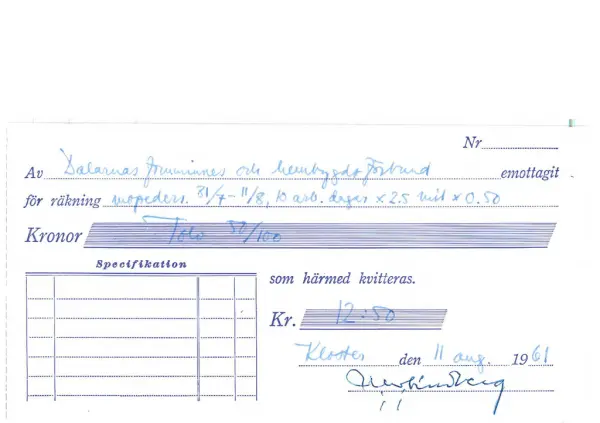 Nr
Av Dalarnas fornminnes och hembygdsförbund emottagit
för räkning mopeders. 31/7 – 11/8, 10 arb. dagar x 2.5 mil x 0.50
Kronor Tolv 50/100
Specifikation
som härmed kvitteras.
Kr. 12:50
Kloster den 11 aug. 1961